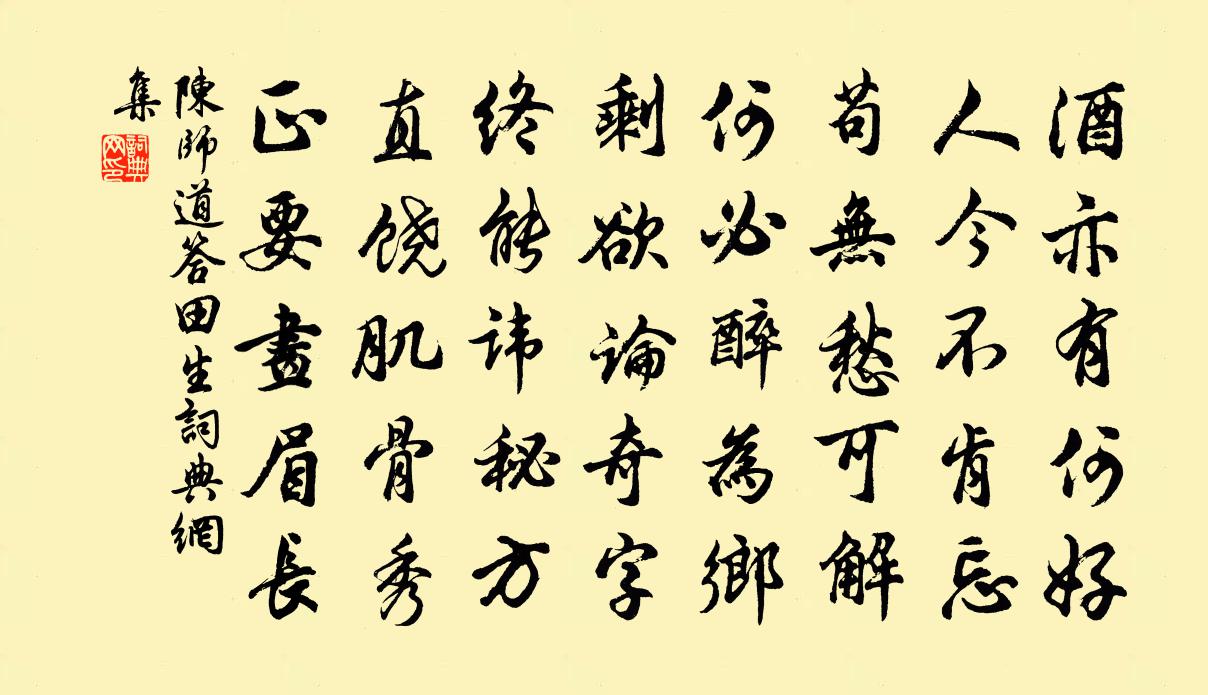 酒亦有何好
人今不肯忘
苟無愁可解
何必醉為鄉
剩欲論奇字
终能讳秘方
直饶肌骨秀
正要畫眉長
陳師道答田生詞典網
集
詞典網印